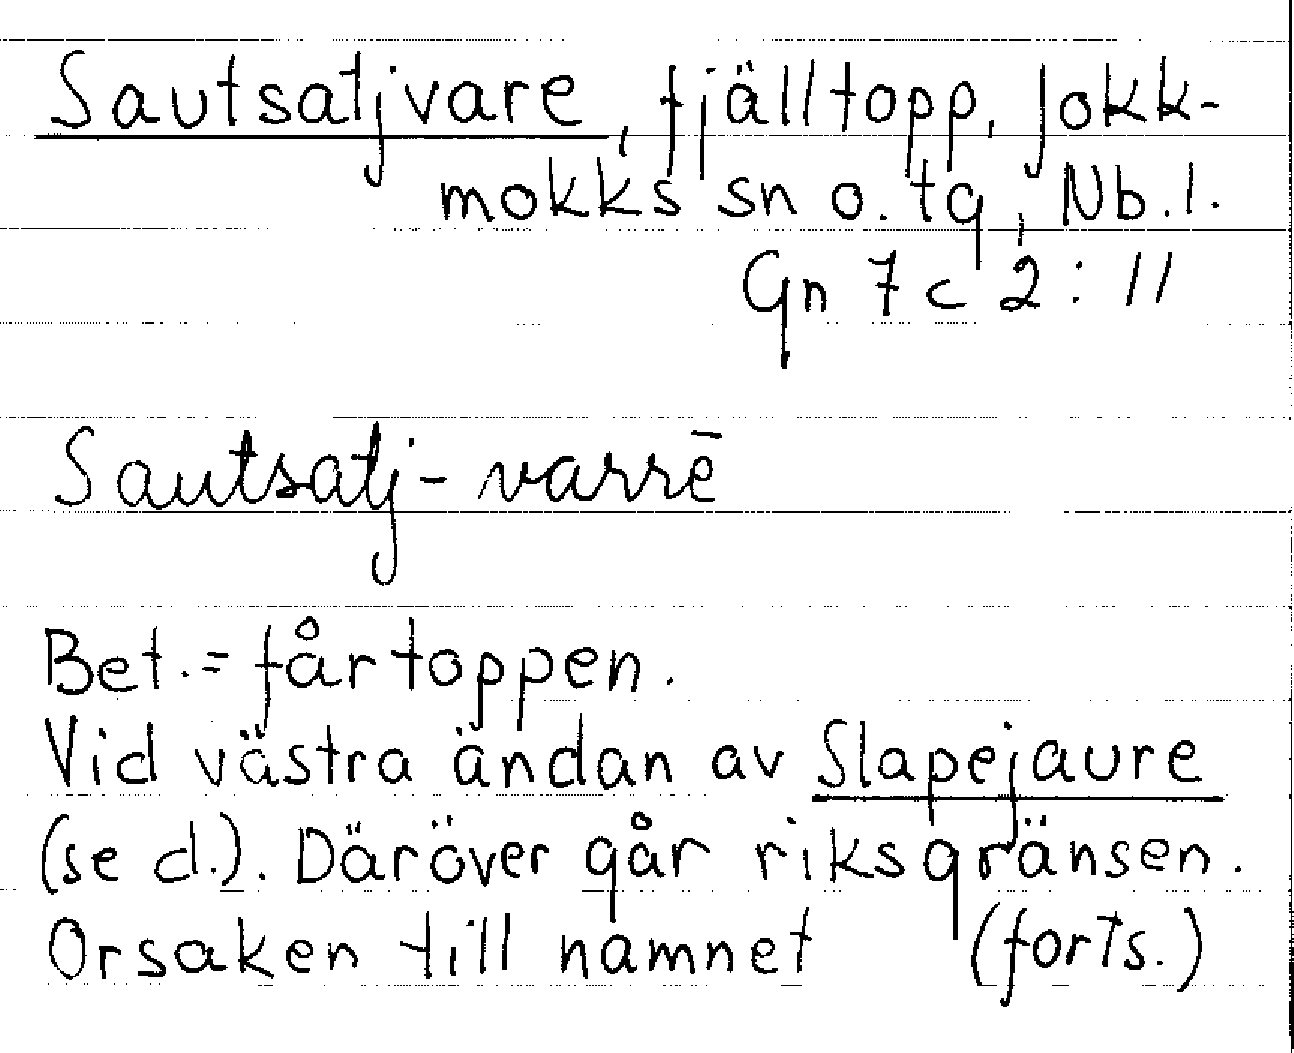 Sautsatjvare, fjälltopp, Jokk-
mokks sn o. tg, Nb.l.
Gn 7 c 2 : 11
Sautsatj-varrē
Bet. = fårtoppen.
Vid västra ändan av Slapejaure
(se d.). Däröver går riksgränsen.
Orsaken till namnet (forts.)